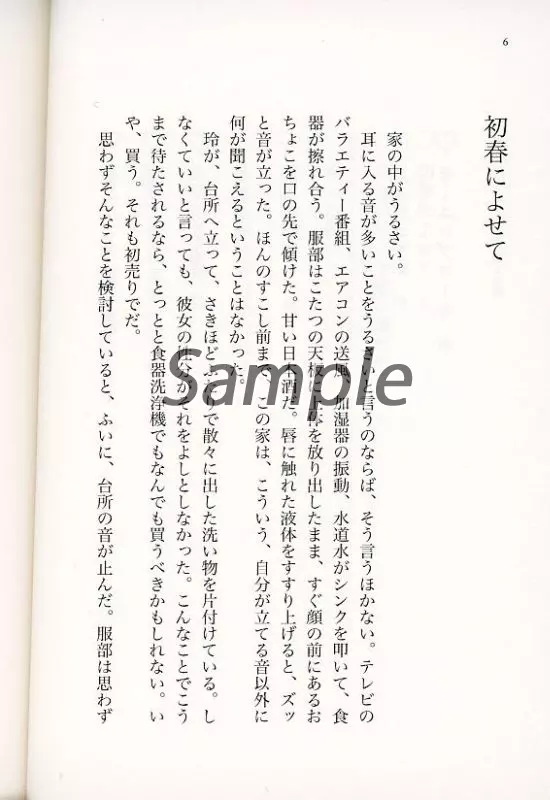 6
初春によせて
家の中がうるさい。
耳に入る音が多いことをうるさいと言うのならば、そう言うほかない。テレビの
バラエティー番組、エアコンの送風、加湿器の振動、水道水がシンクを叩いて、食
器が擦れ合う。服部はこたつの天板に上体を放り出したまま、すぐ顔の前にあるお
ちょこを口の先で傾けた。甘い日本酒だ。唇に触れた液体をすすり上げると、ズッ
と音が立った。ほんのすこし前まで、この家は、こういう、自分が立てる音以外に
何が聞こえるということはなかった。
玲が、台所へ立って、さきほどふたりで散々に出した洗い物を片付けている。し
なくていいと言っても、彼女の性分がそれをよしとしなかった。こんなことでこう
まで待たされるなら、とっとと食器洗浄機でもなんでも買うべきかもしれない。い
や、買う。それも初売りでだ。
思わずそんなことを検討していると、ふいに、台所の音が止んだ。服部は思わず
Sample